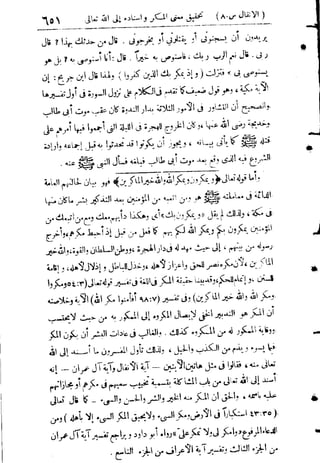 (الانفال س ٨) تحقيق معنى المكر واسناده إلى الله تعالى ٦٥١
يريدون أن يسجنوني أو يقتلوني أو يخرجوني . قال من حدثك بهذا ؟ قال
ربي . قال نعم الرب ربك ، فاستوص به خيراً . قال : أنا أستوصي به ؟ بل هو
يستوصي بي » فنزلت ( وإذ يمكر بك الذين كفروا ) ولهذا قال ابن جريج : إن
الآية مكية ، وهو قول ضعيف كما تقدم في الكلام على نزول السورة في أول تفسيرها
والصحيح أن التشاور في الامور الثلاثة بدار الندوة كان عقب موت أبي طالب
وخديجة رضي الله عنها ، وكان الخروج للهجرة في الليلة التي أجمعوا فيها أمرهم على
قتله (ص) كما يأتي بيانه ، ويجوز أن يكونوا قد تحدثوا به قبل إجماعه وإرادة
الشروع فيه الذي وقع بعد موت أبي طالب فبلغه فسأل النبي ﷺ عنه .
وأما قوله تعالى ﴿ويمكرون ويمكر الله والله خير الماكرين﴾ فهو بيان لحالهم العامة
الدائمة في معاملته ﷺ هو ومن اتبعه من المؤمنين بعد التذكير بشر ما كان منها
في مكة ، ولذلك لم يقل « ويمكرون بك » أي وهكذا دأبهم معك ومع من اتبعك من
المؤمنين يمكرون بكم ويمكر الله لكم بهم كما فعل من قبل إذ أحبط مكرهم ، وأخرج
رسوله من بينهم ، إلى حيث مهد له في دار الهجرة ، ووطن السلطان والقوة ، والله خير
الماكرين ، لأن مكره نصر للحق واعزاز لأهله ، وخذل للباطل وإذلال لأهله ، وإقامة
للسنن ، وإتمام للحكم ، وقد بينا حقيقة المكر في اللغة في تفسير قوله تعالى (٥٤:٣ ومكروا
ومكر الله والله خير الماكرين) وفي تفسير (٩٨:٧ أفأمنوا مكر الله ) الآية وخلاصته
أن المكر هو التدبير الخفي لإيصال المكروه إلى الممكور به من حيث لا يحتسب
ووقاية الممكور له من المكروه كذلك . والغالب في عادات البشر أن يكون المكر
فيما يسوء ويذم من الكذب والحيل ، ولذلك تأول المفسرون ما أسند إلى الله
تعالى منه ، فقالوا في مثل هاتين الآيتين — آية الانفال وآية آل عمران — إنه
أسند إلى الله تعالى من باب المشاكلة بتسمية تخييب سعيهم في مكرهم أو مجازاتهم
عليه باسمه ، والحق أن المكر منه الخير والشر والحسن والسيء . كما قال تعالى
(٤٣:٣٥ استكباراً في الأرض ومكر السيء ولا يحيق المكر السيء إلا بأهله ) ومن
الدعاء المرفوع « وامكر لي ولا تمكر علي » رواه أبو داود ويراجع تفسير آية آل عمران
من الجزء الثالث وتفسير آية الأعراف من الجزء التاسع .